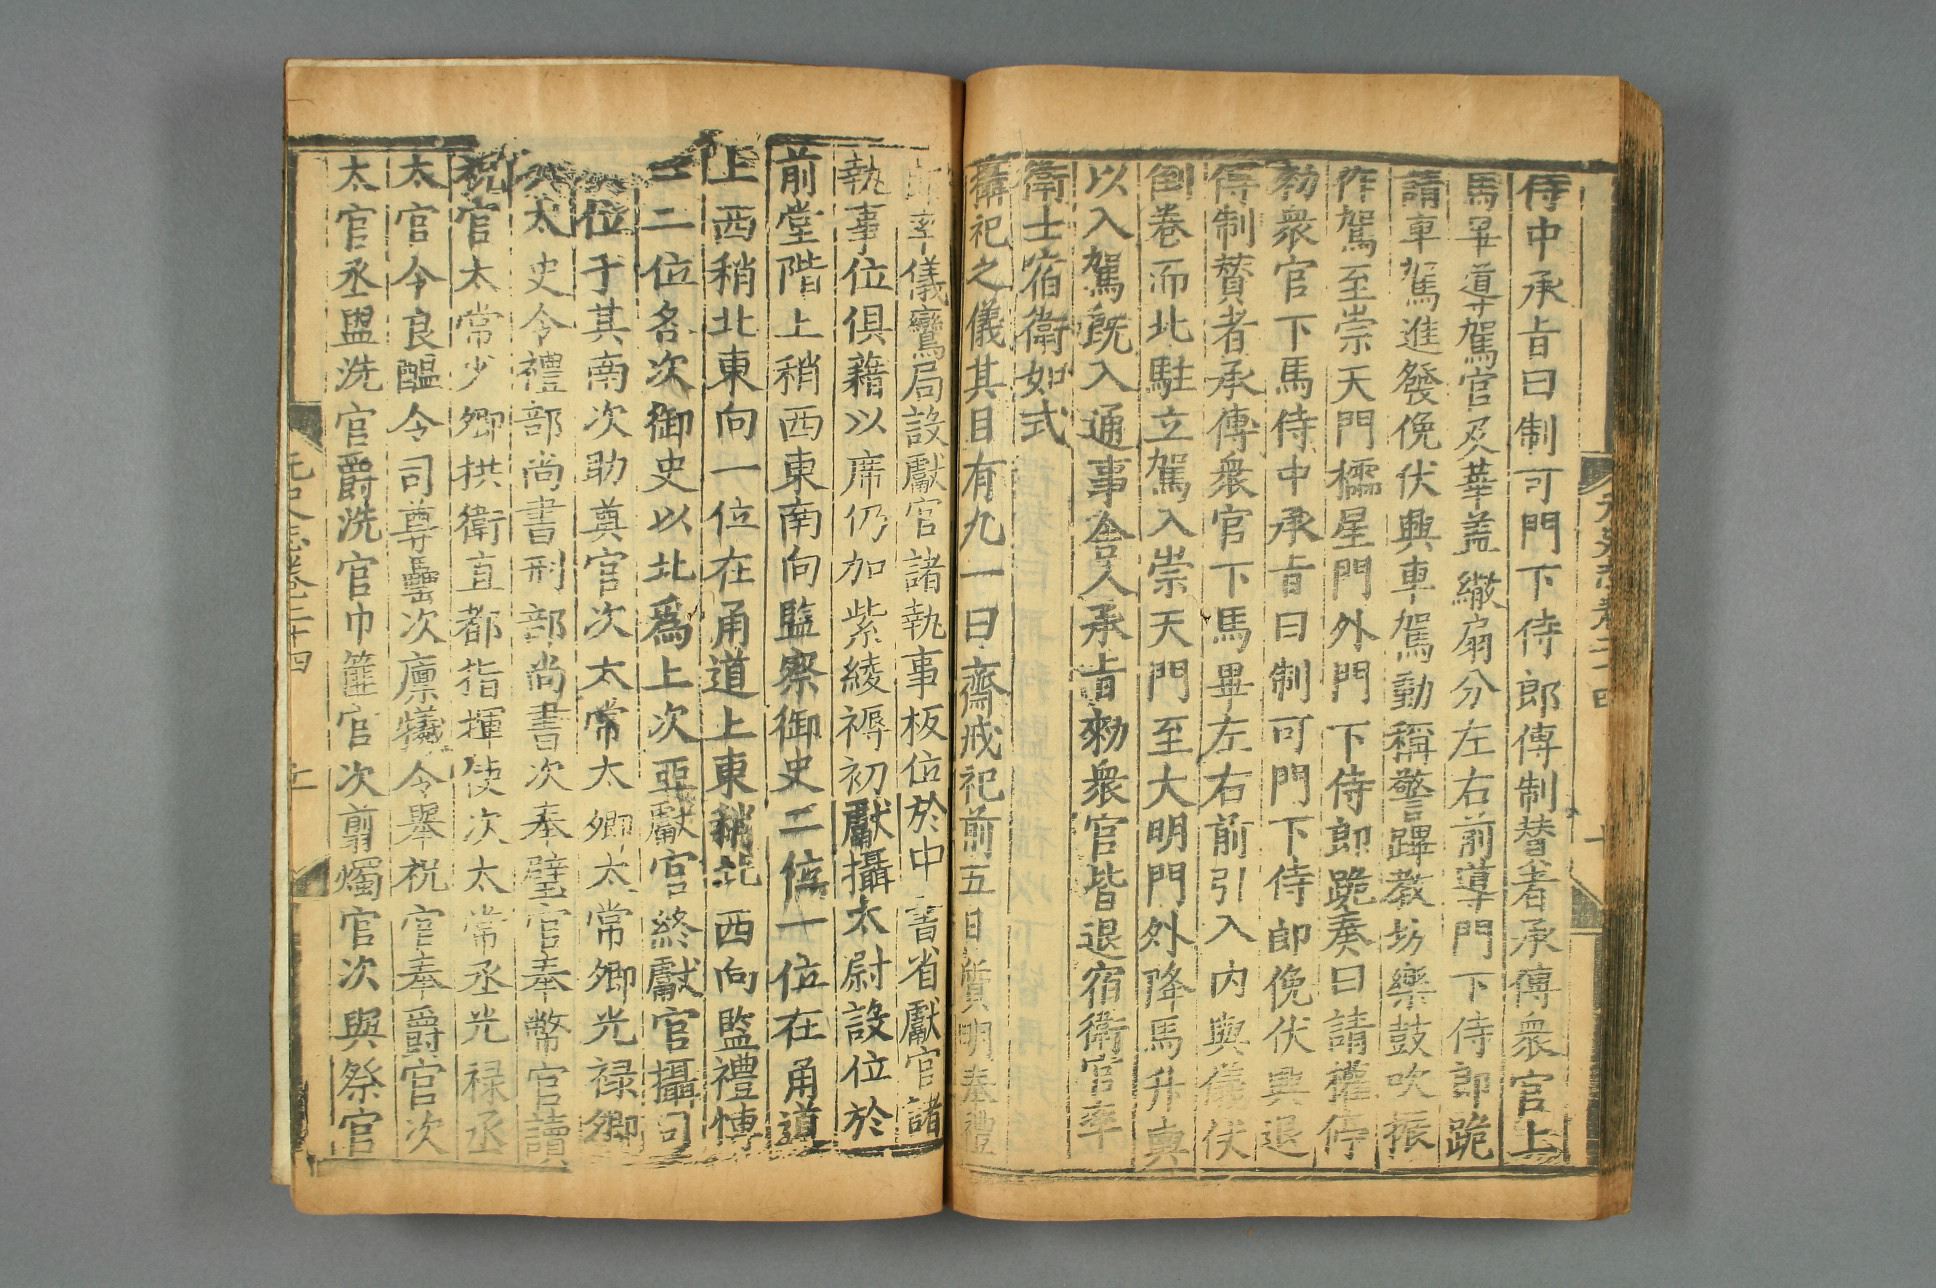 元史志卷二十四
侍中承旨曰制可門下侍郎傳制贊者承傳衆官上
馬畢導駕官及華蓋繖扇分左右前導門下侍郎跪
請車駕進發俛伏興車駕動稱警蹕教坊樂鼓吹振
作駕至崇天門櫺星門外門下侍郎跪奏曰請權停
勑衆官下馬侍中承旨曰制可門下侍郎俛伏興退
傳制贊者承傳衆官下馬畢左右前引入内輿儀仗
倒卷而北駐立駕入崇天門至大明門外降馬升輿
以入駕旣入通事舍人承旨勑衆官皆退宿衛官率
衛士宿衛如式
攝祀之儀其目有九一曰齋戒祀前五日質明奉禮
郎率儀鸞局設獻官諸執事板位於中書省獻官諸
執事位俱藉以席仍加紫綾褥初獻攝太尉設位於
前堂階上稍西東南向監察御史二位一位在甬道
上西稍北東向一位在甬道上東稍北西向監禮博
士二位各次御史以北爲上次亞獻官終獻官攝司
位于其南次助奠官次太常太卿太常卿光禄卿
次太史令禮部尚書刑部尚書次奉璧官奉幣官讀
祝官太常少卿拱衛直都指揮使次太常丞光禄丞
太官令良醞令司尊罍次廪犧令舉祝官奉爵官次
太官丞盥洗官爵洗官巾篚官次翦燭官次與祭官
元史志卷二十四